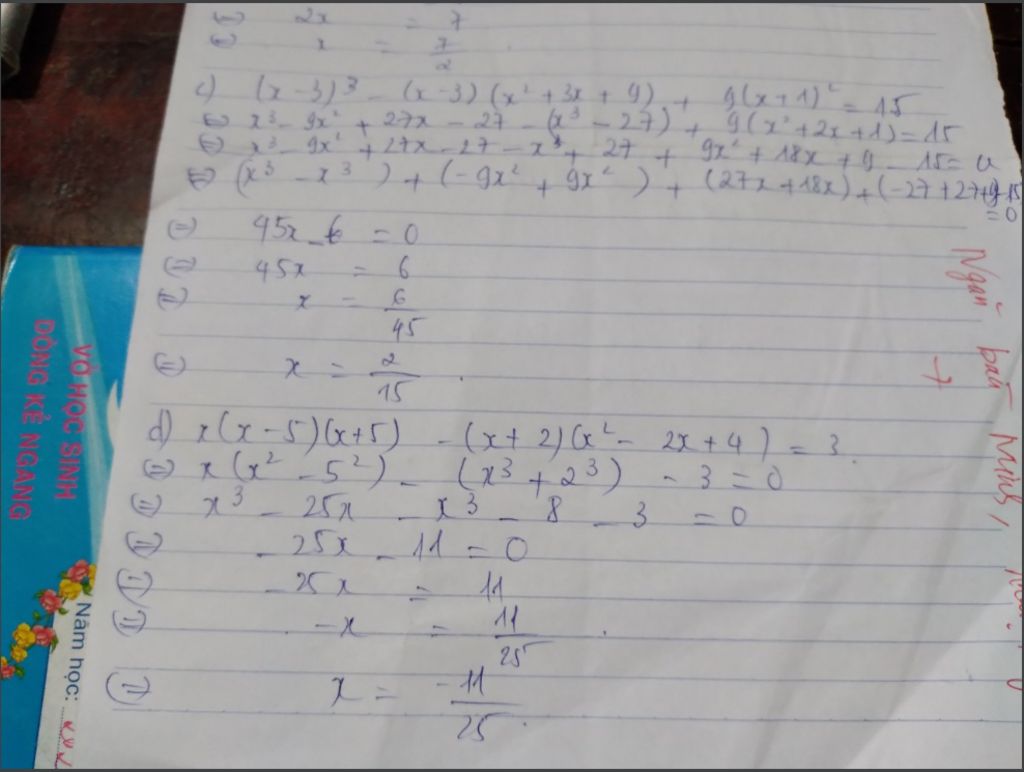 ⇔ 2x = 7
⇔ x = 7/2.
c) (x-3)³ - (x-3)(x² + 3x + 9) + 9(x+1)² = 15
⇔ x³ - 9x² + 27x - 27 - (x³ - 27) + 9(x² + 2x + 1) = 15
⇔ x³ - 9x² + 27x - 27 - x³ + 27 + 9x² + 18x + 9 - 15 = 0
⇔ (x³ - x³) + (-9x² + 9x²) + (27x + 18x) + (-27 + 27 + 9 - 15)
= 0
⇔ 45x - 6 = 0
⇔ 45x = 6
⇔ x = 6/45
⇔ x = 2/15.
d) x(x-5)(x+5) - (x+2)(x² - 2x + 4) = 3.
⇔ x(x² - 5²) - (x³ + 2³) - 3 = 0
⇔ x³ - 25x - x³ - 8 - 3 = 0
⇔ -25x - 11 = 0
⇔ -25x = 11
⇔ -x = 11/25.
⇔ x = -11/25.
VỞ HỌC SINH
DÒNG KẺ NGANG
Năm học: